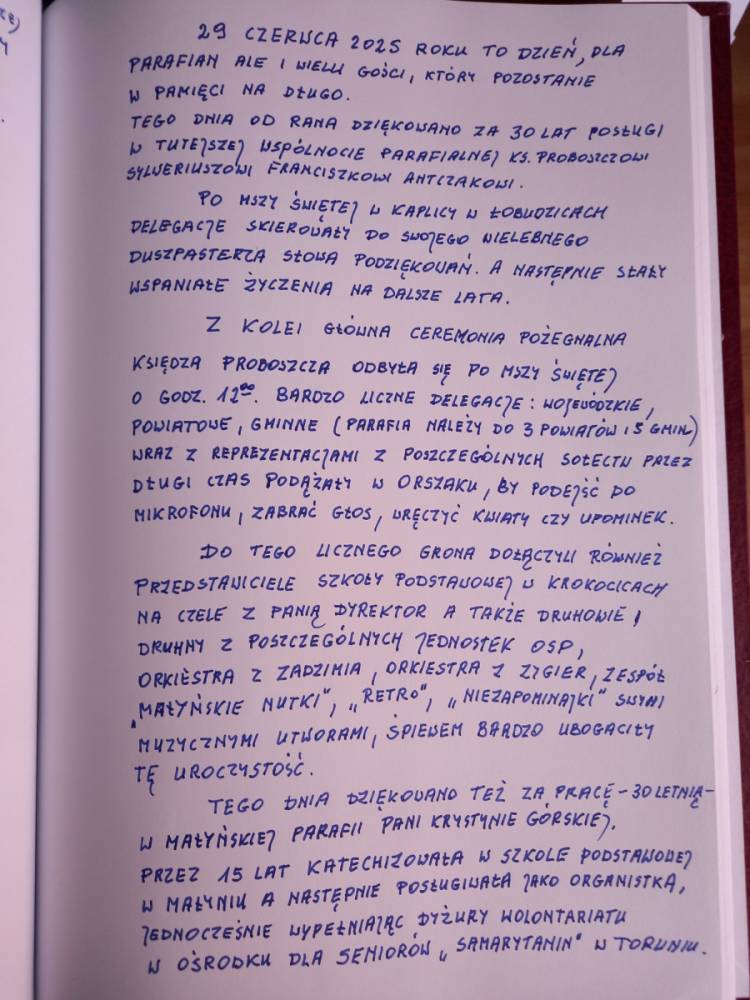 29 CZERWCA 2025 ROKU TO DZIEŃ, DLA
PARAFIAN ALE I WIELU GOŚCI, KTÓRY POZOSTANIE
W PAMIĘCI NA DŁUGO.
TEGO DNIA OD RANA DZIĘKOWANO ZA 30 LAT POSŁUGI
W TUTEJSZEJ WSPÓLNOCIE PARAFIALNEJ KS. PROBOSZCZOWI
SYLWERIUSZOWI FRANCISZKOWI ANTCZAKOWI.
PO MSZY ŚWIĘTEJ W KAPLICY W ŁOBUDZICACH
DELEGACJE SKIEROWAŁY DO SWOJEGO WIELEBNEGO
DUSZPASTERZA SŁOWA PODZIĘKOWAŃ. A NASTĘPNIE SŁAŁY
WSPANIAŁE ŻYCZENIA NA DALSZE LATA.
Z KOLEI GŁÓWNA CEREMONIA POŻEGNALNA
KSIĘDZA PROBOSZCZA ODBYŁA SIĘ PO MSZY ŚWIĘTEJ
O GODZ. 12⁰⁰. BARDZO LICZNE DELEGACJE: WOJEWÓDZKIE,
POWIATOWE, GMINNE (PARAFIA NALEŻY DO 3 POWIATÓW I 5 GMIN)
WRAZ Z REPREZENTACJAMI Z POSZCZEGÓLNYCH SOŁECTW PRZEZ
DŁUGI CZAS PODĄŻAŁY W ORSZAKU, BY PODEJŚĆ DO
MIKROFONU, ZABRAĆ GŁOS, WRĘCZYĆ KWIATY CZY UPOMINEK.
DO TEGO LICZNEGO GRONA DOŁĄCZYLI RÓWNIEŻ
PRZEDSTAWICIELE SZKOŁY PODSTAWOWEJ W KROKOCICACH
NA CZELE Z PANIĄ DYREKTOR A TAKŻE DRUHOWIE I
DRUHNY Z POSZCZEGÓLNYCH JEDNOSTEK OSP,
ORKIESTRA Z ZADZIMIA, ORKIESTRA Z ZYGIER, ZESPÓŁ
"MAŁYŃSKIE NUTKI", „RETRO", „NIEZAPOMINAJKI" SWYMI
MUZYCZNYMI UTWORAMI, ŚPIEWEM BARDZO UBOGACIŁY
TĘ UROCZYSTOŚĆ.
TEGO DNIA DZIĘKOWANO TEŻ ZA PRACĘ - 30 LETNIĄ -
W MAŁYŃSKIEJ PARAFII PANI KRYSTYNIE GÓRSKIEJ.
PRZEZ 15 LAT KATECHIZOWAŁA W SZKOLE PODSTAWOWEJ
W MAŁYNIU A NASTĘPNIE POSŁUGIWAŁA JAKO ORGANISTKA,
JEDNOCZEŚNIE WYPEŁNIAJĄC DYŻURY WOLONTARIATU
W OŚRODKU DLA SENIORÓW „SAMARYTANIN" W TORUNIU.